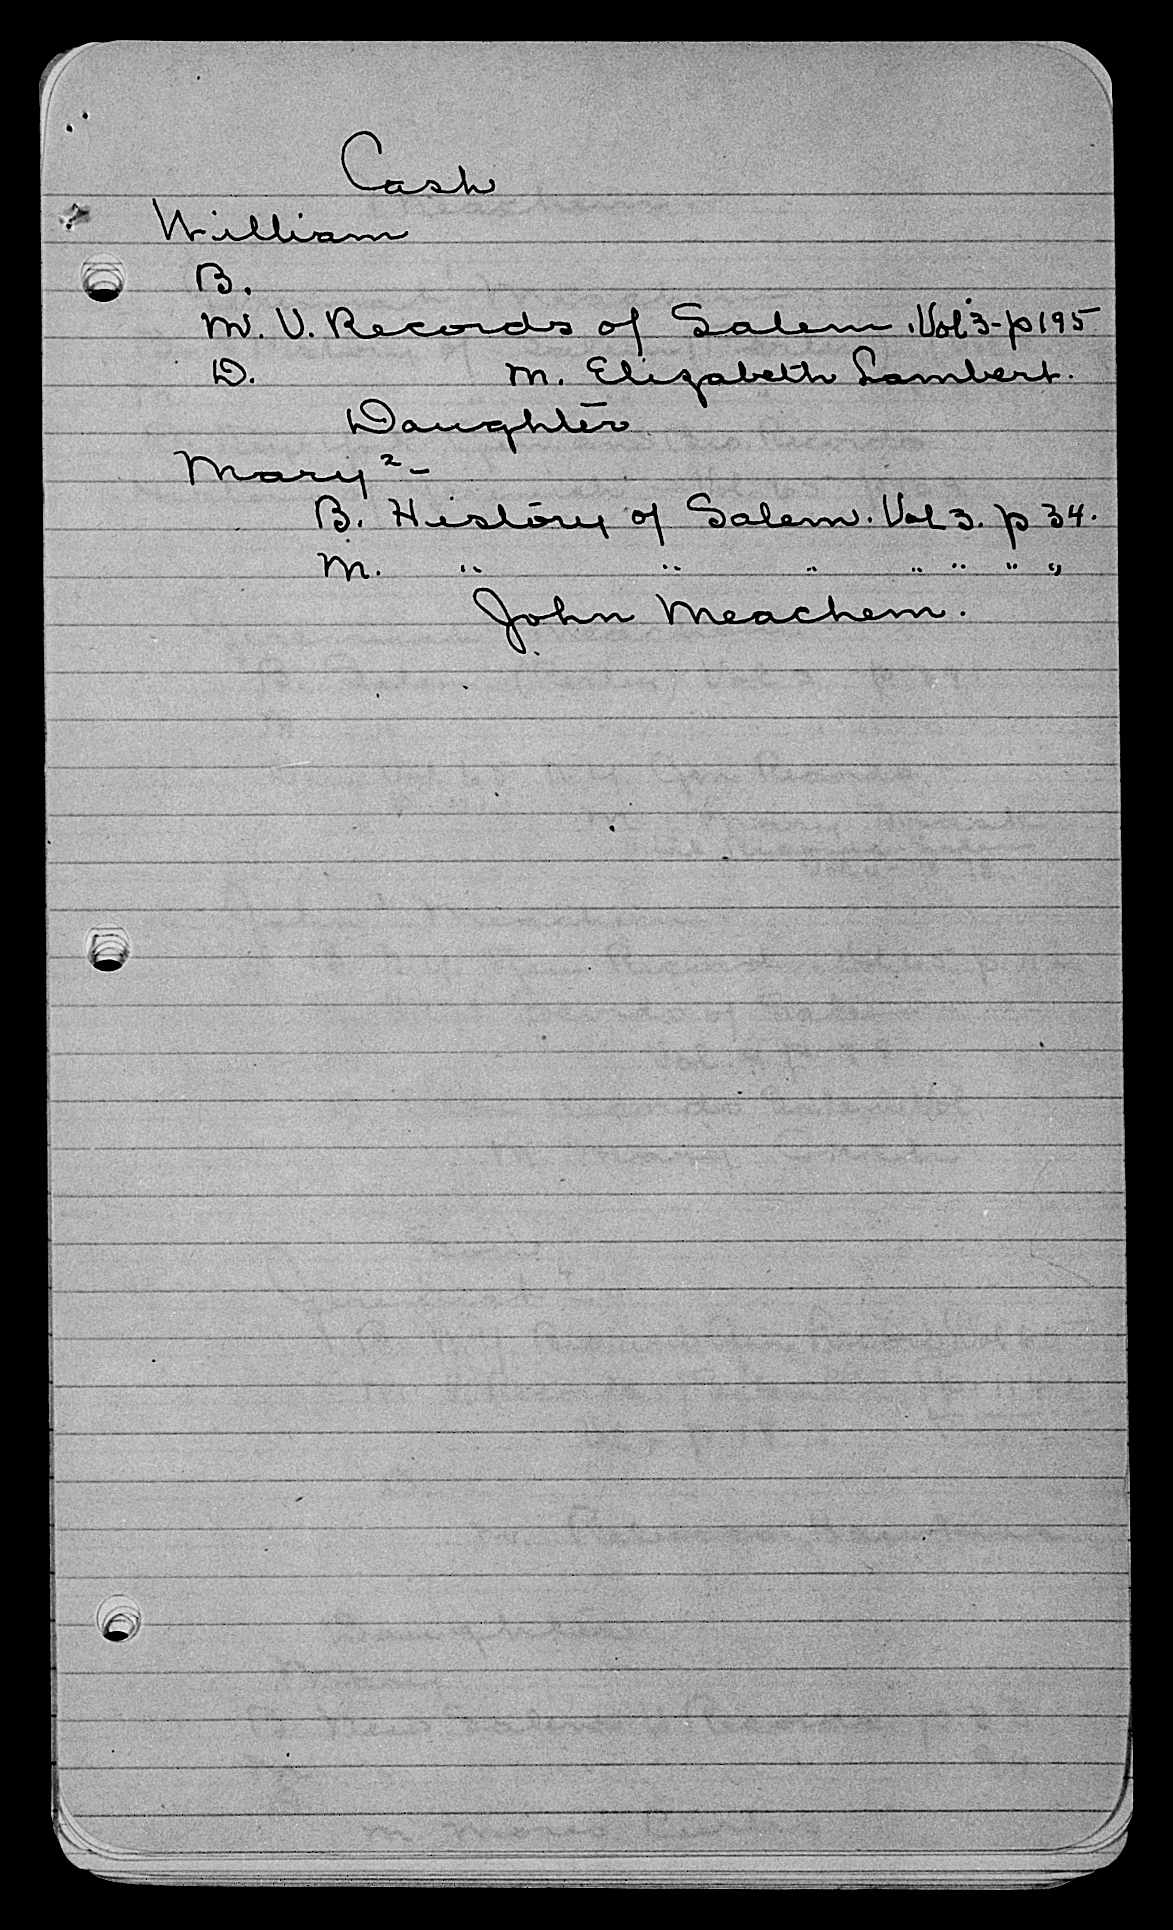 Cash
William
B.
M. V. Records of Salem. Vol. 3 - p 195
D. m. Elizabeth Lambert.
Daughter
Mary 2 -
B. History of Salem. Vol 3. p 34.
M. " " " " " " "
John Meachem.